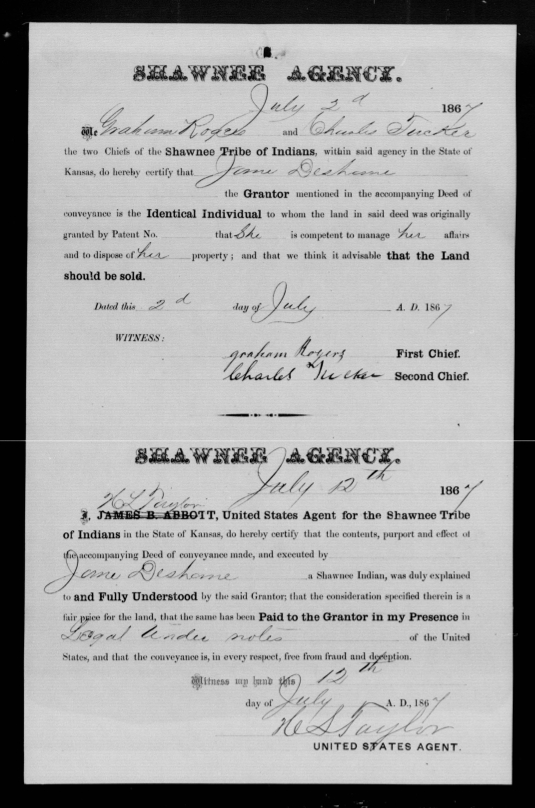 SHAWNEE AGENCY.
July 2d 1867
We Graham Rogers and Charles Tucker
the two Chiefs of the Shawnee Tribe of Indians, within said agency in the State of
Kansas, do hereby certify that Jane Deshane
the Grantor mentioned in the accompanying Deed of
conveyance is the Identical Individual to whom the land in said deed was originally
granted by Patent No. that She is competent to manage her affairs
and to dispose of her property; and that we think it advisable that the Land
should be sold.
Dated this 2d day of July A. D. 1867
WITNESS:
graham Rogers First Chief.
Charles Tucker Second Chief.
SHAWNEE AGENCY.
July 12th
1867
H L Taylor
I, JAMES B. ABBOTT, United States Agent for the Shawnee Tribe
of Indians in the State of Kansas, do hereby certify that the contents, purport and effect of
the accompanying Deed of conveyance made, and executed by
Jane Deshane a Shawnee Indian, was duly explained
to and Fully Understood by the said Grantor; that the consideration specified therein is a
fair price for the land, that the same has been Paid to the Grantor in my Presence in
Legal notes of the United
States, and that the conveyance is, in every respect, free from fraud and deception.
Witness my hand this 12th
day of July A. D., 1867
H L Taylor
UNITED STATES AGENT.